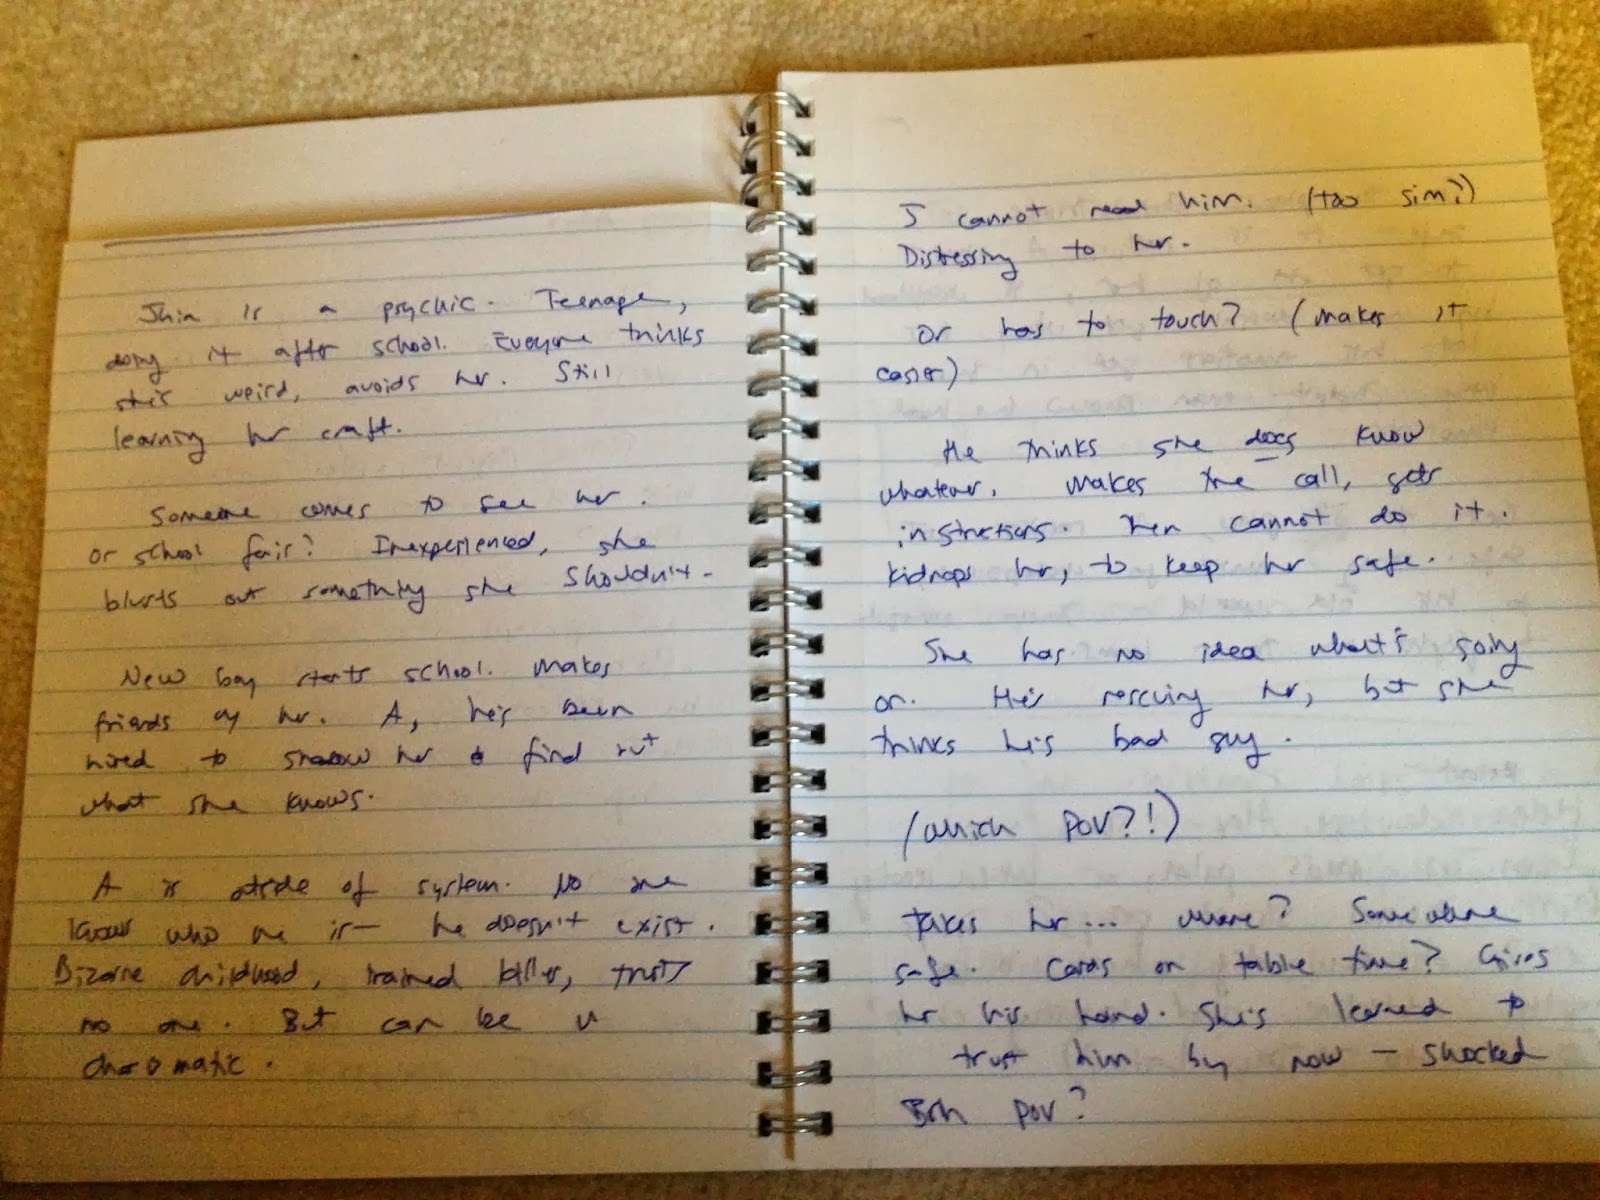 is a psychic. Teenage,
doing it after school. Everyone thinks
she's weird, avoids her. Still
learning her craft.
Someone comes to see her.
or school fair? Inexperienced, she
blurts out something she shouldn't.
New boy starts school. Makes
friends w her. A, he's been
hired to shadow her & find out
what she knows.
A is outside of system. No one
knows who he is — he doesn't exist.
Bizarre childhood, trained killer, trusts
no one. But can be v
charomatic.
J cannot read him. (too sim?)
Distressing to her.
Or has to touch? (Makes it
easier)
He thinks she does know
whatever. Makes the call, gets
instructions. Then cannot do it.
Kidnaps her, to keep her safe.
She has no idea what's going
on. He's rescuing her, but she
thinks he's bad guy.
(which POV?!)
Takes her... where? Somewhere
safe. Cards on table time? Gives
her his hand. She's learned to
trust him by now — shocked
Both POV?